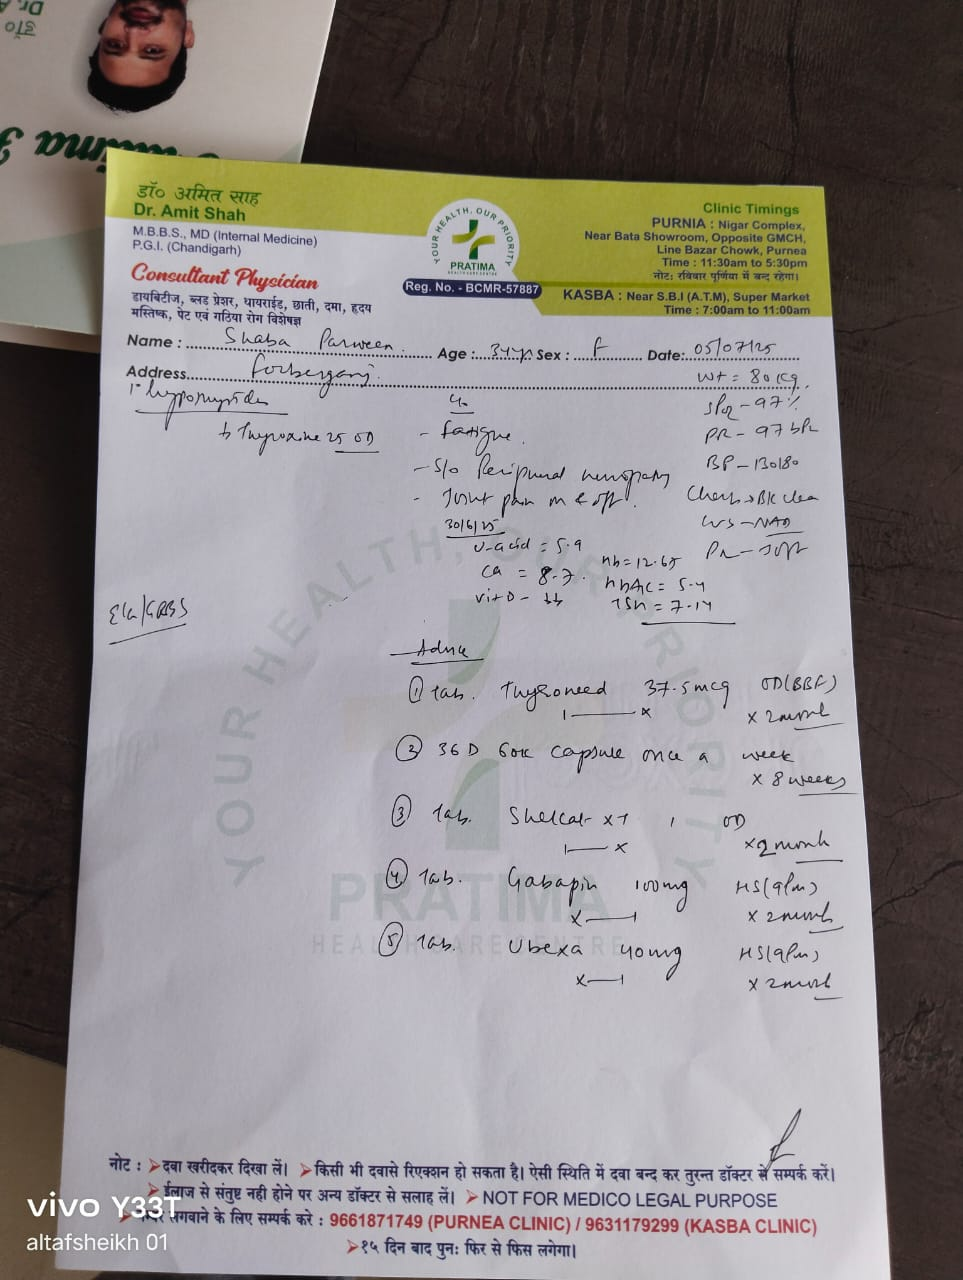 डॉ०
Dr. A
डॉ० अमित साह
Dr. Amit Shah
M.B.B.S., MD (Internal Medicine)
P.G.I. (Chandigarh)
Consultant Physician
डायबिटीज, ब्लड प्रेशर, थायराईड, छाती, दमा, हृदय
मस्तिष्क, पेट एवं गठिया रोग विशेषज्ञ
YOUR HEALTH, OUR PRIORITY
PRATIMA
HEALTH CARE CENTRE
Reg. No. - BCMR-57887
Clinic Timings
PURNIA : Nigar Complex,
Near Bata Showroom, Opposite GMCH,
Line Bazar Chowk, Purnea
Time : 11:30am to 5:30pm
नोट: रविवार पूर्णिया में बन्द रहेगा।
KASBA : Near S.B.I (A.T.M), Super Market
Time : 7:00am to 11:00am
Name : Shaba Parween Age : 34yr Sex : F Date: 05/07/25
Address Forbesganj
Wt = 80 kg
SPO2 - 97 %
PR - 97 bpm
BP - 130/80
CVS - NAD
PA - Soft
Thyroxine 25 OD
c/o
- fatigue.
- S/o Peripheral neuropathy
- Joint pain
30/6/25
U-acid = 5.9
Ca = 8.7
Hb = 12.65
HbA1c = 5.4
TSH = 7.14
Advice
① Tab. Thyroneed 37.5mcg OD (BBF)
1 —— x
x 2 month
② 36D 60K capsule once a week
x 8 weeks
③ Tab. Shelcal-XT 1 OD
1 —— x
x 2 month
④ Tab. Gabapin 100mg HS (9pm)
x —— 1
x 2 month
⑤ Tab. Ubexa 40mg HS (9pm)
x —— 1
x 2 month
YOUR HEALTH, OUR PRIORITY
PRATIMA
HEALTH CARE CENTRE
नोट : ➤दवा खरीदकर दिखा लें। ➤किसी भी दवासे रिएक्शन हो सकता है। ऐसी स्थिति में दवा बन्द कर तुरन्त डॉक्टर से सम्पर्क करें।
➤ईलाज से संतुष्ट नही होने पर अन्य डॉक्टर से सलाह लें। ➤ NOT FOR MEDICO LEGAL PURPOSE
लगवाने के लिए सम्पर्क करे : 9661871749 (PURNEA CLINIC) / 9631179299 (KASBA CLINIC)
➤१५ दिन बाद पुनः फिर से फिस लगेगा।
vivo Y33T
altafsheikh 01